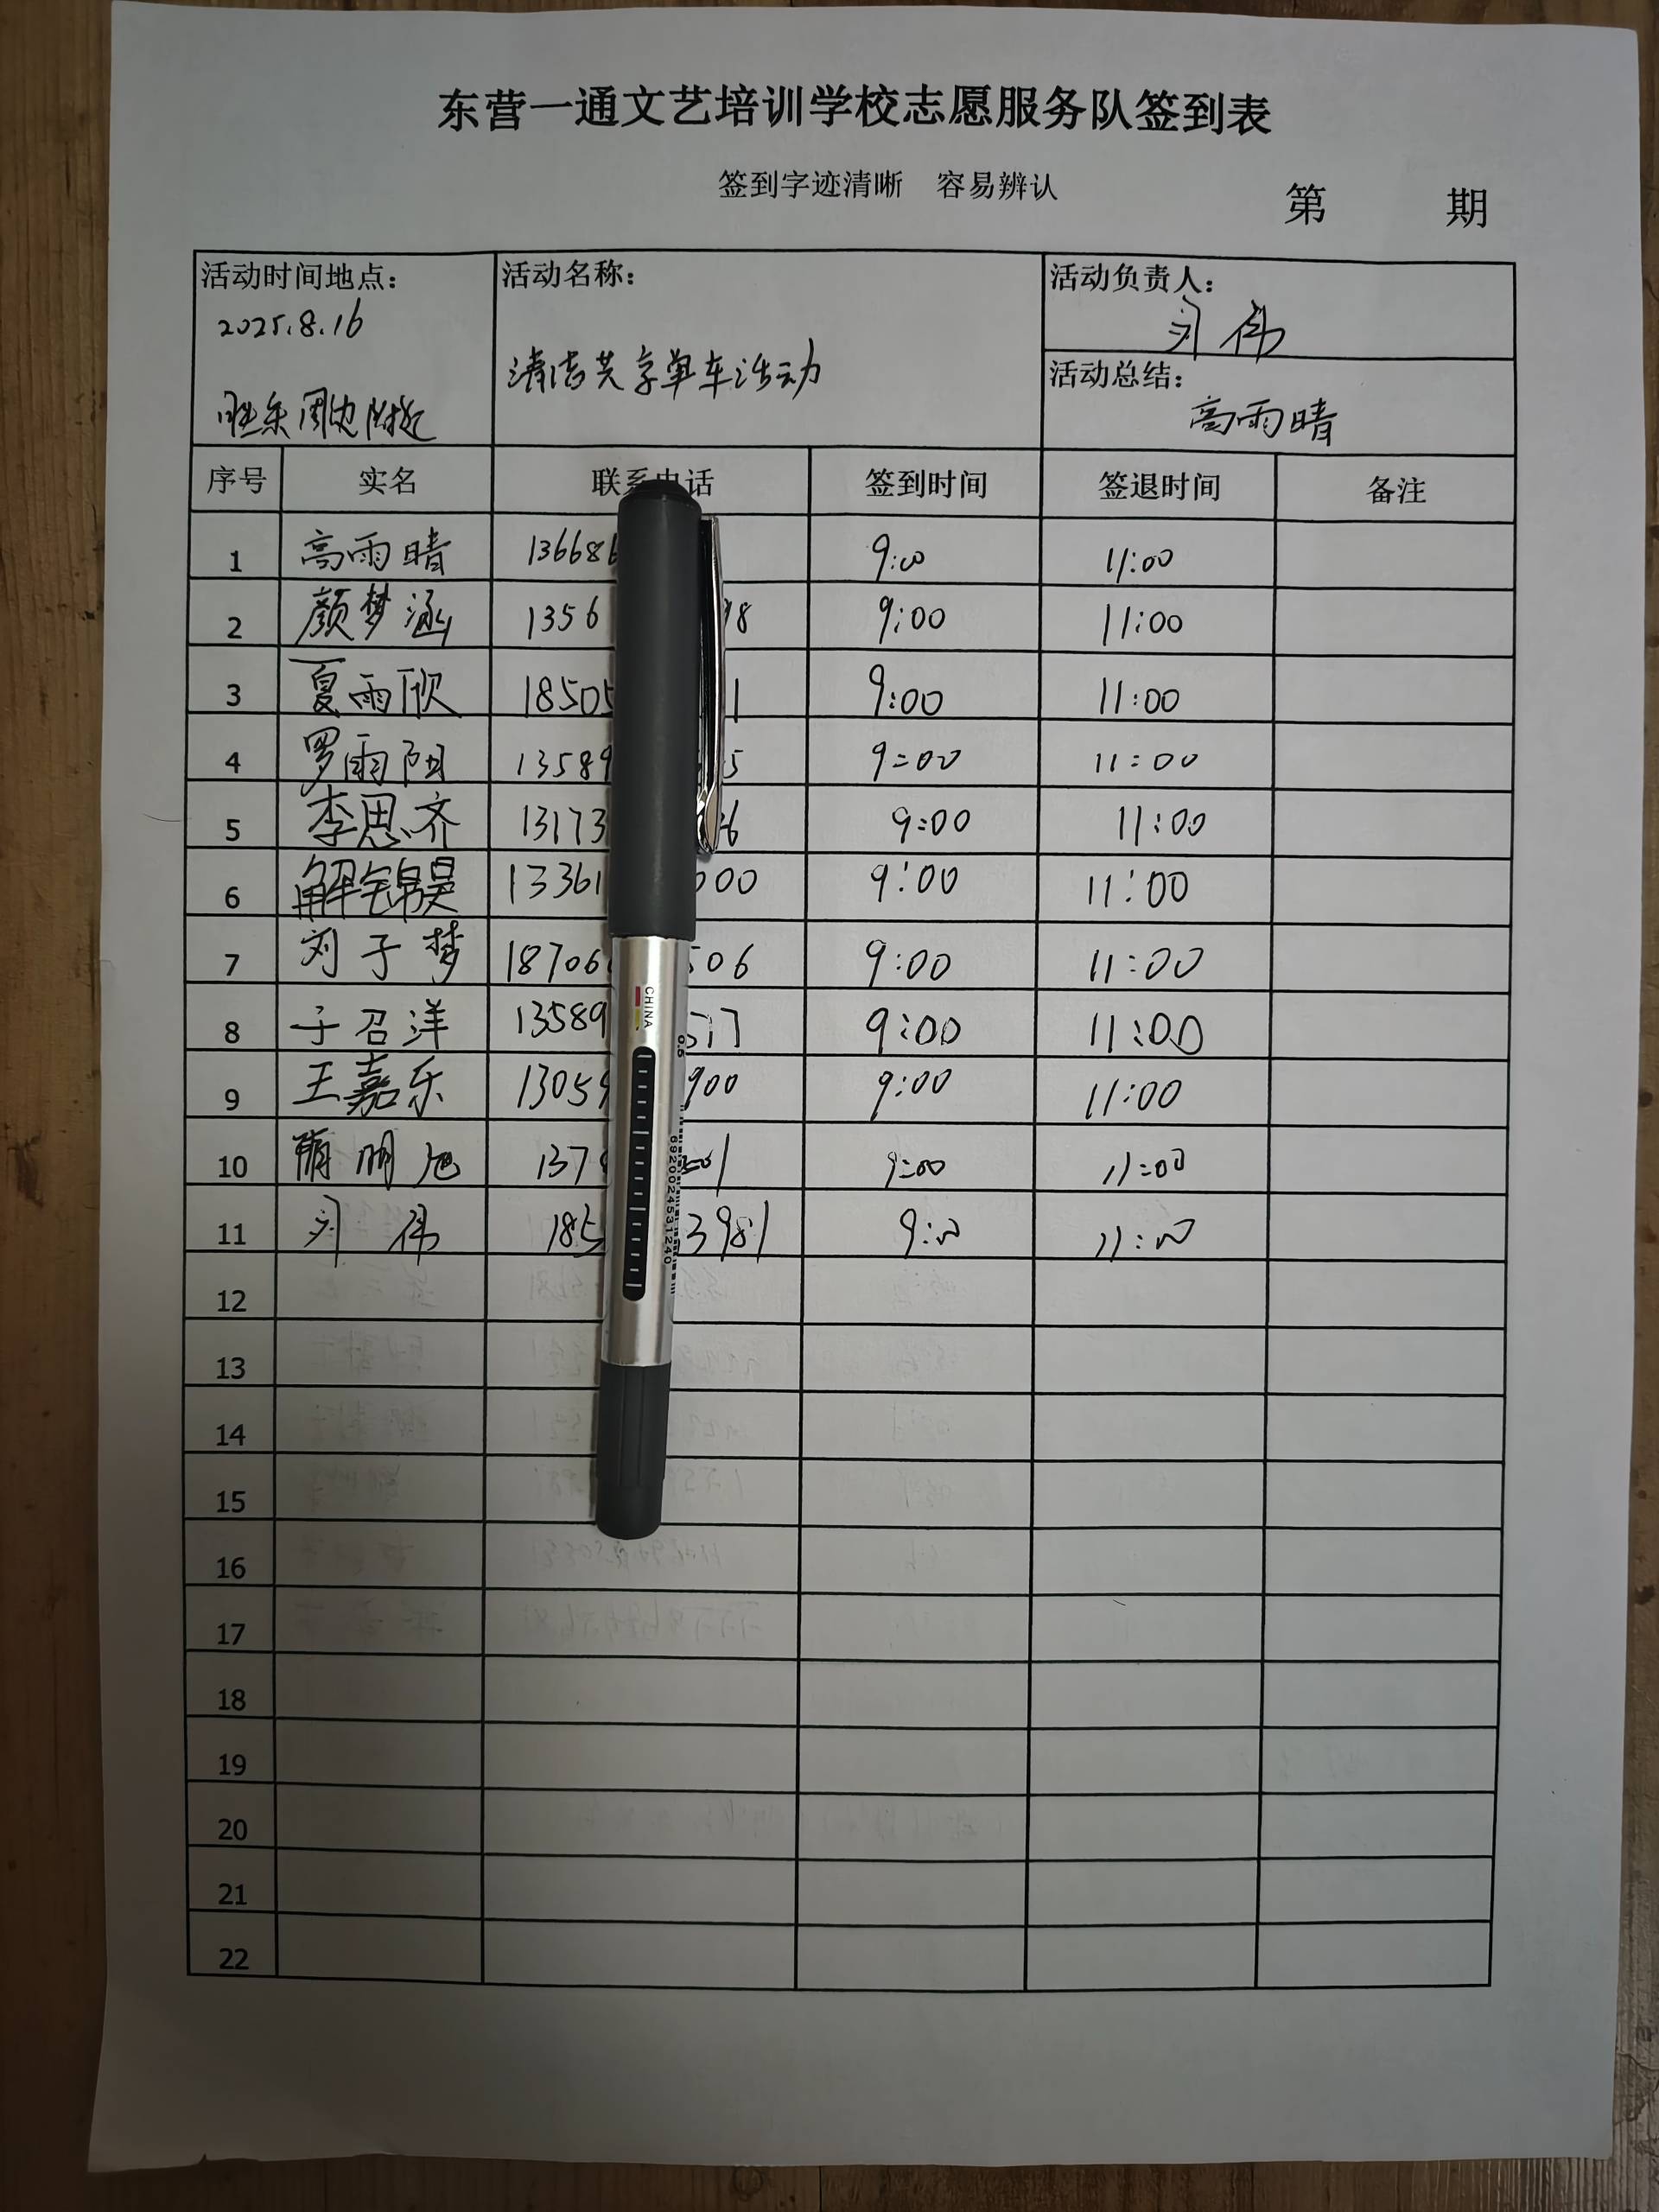 东营一通文艺培训学校志愿服务队签到表
签到字迹清晰 容易辨认
第 期
活动时间地点： 活动名称： 活动负责人：
2025.8.16 刘伟
清洁共享单车活动 活动总结：
周边附近 高雨晴
序号 实名 联系电话 签到时间 签退时间 备注
1 高雨晴 13668 9:00 11:00
2 颜梦涵 1356 98 9:00 11:00
3 夏雨欣 18505 1 9:00 11:00
4 罗雨阳 13589 5 9:00 11:00
5 李思齐 13173 36 9:00 11:00
6 解锦昊 13361 000 9:00 11:00
7 刘子梦 18706 506 9:00 11:00
8 于召洋 13589 577 9:00 11:00
9 王嘉乐 13059 900 9:00 11:00
10 隋明旭 137 501 9:00 11:00
11 刘伟 185 3981 9:00 11:00
12
13
14
15
16
17
18
19
20
21
22
CHINA
0.5
6920024531240